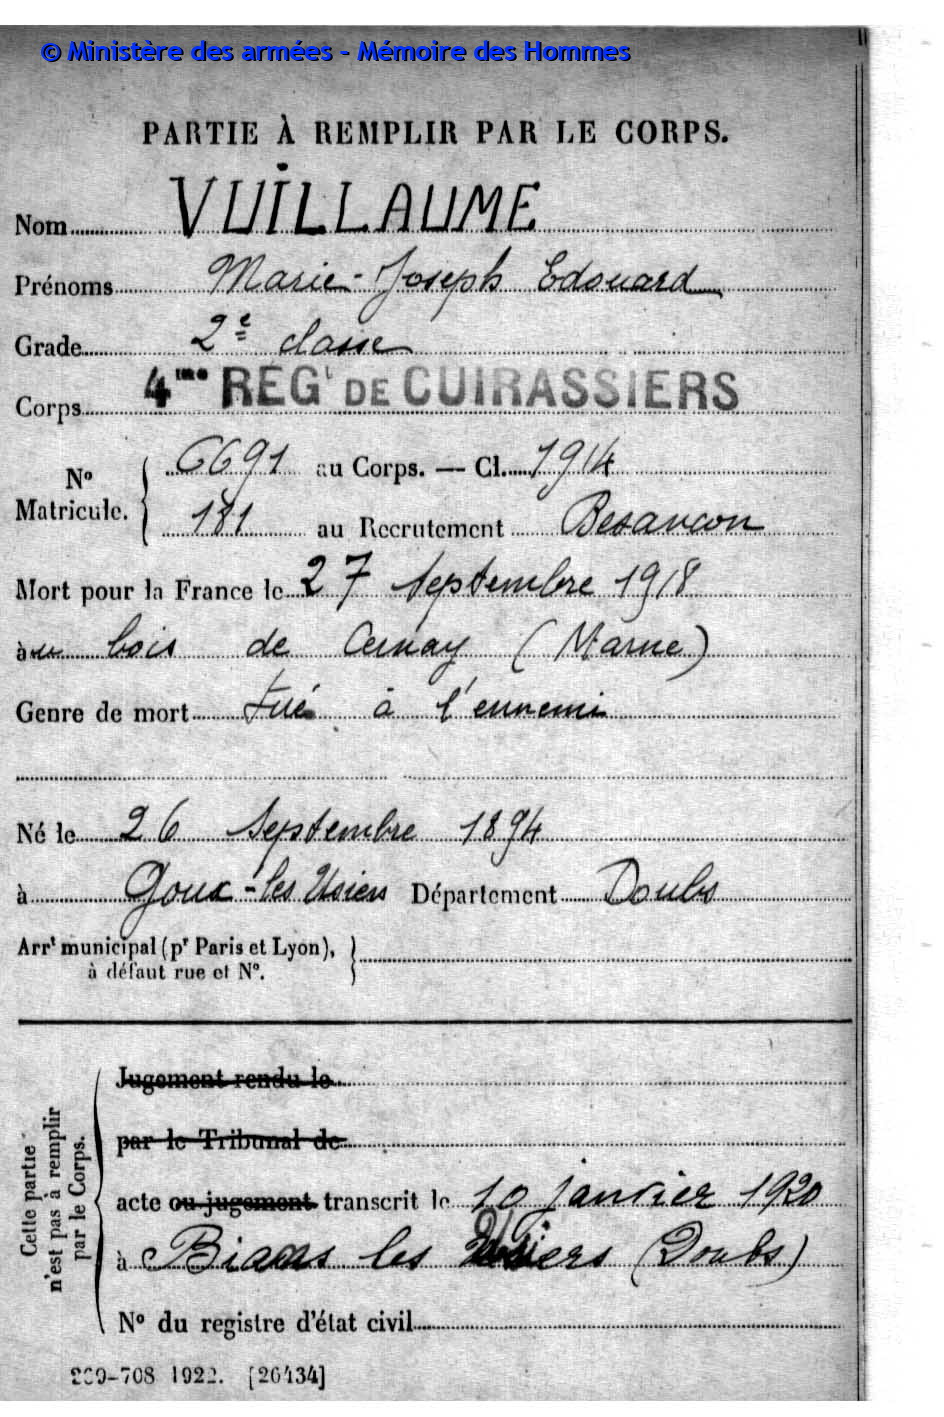 © Ministère des armées - Mémoire des Hommes
PARTIE À REMPLIR PAR LE CORPS.
Nom VUILLAUME
Prénoms Marie-Joseph Edouard
Grade 2e classe
Corps 4me REGt DE CUIRASSIERS
No Matricule. { 6691 au Corps. — Cl. 1914
181 au Recrutement Besancon
Mort pour la France le 27 Septembre 1918
àu bois de Cernay (Marne)
Genre de mort tué à l'ennemi
Né le 26 Septembre 1894
à Goux-les Usiers Département Doubs
Arrt municipal (pr Paris et Lyon), }
à défaut rue et No.
Cette partie
n'est pas à remplir
par le Corps.
Jugement rendu le
par le Tribunal de
acte ou jugement transcrit le 10 janvier 1920
à Bians les Usiers (Doubs)
No du registre d'état civil
-708 1922. [26434]